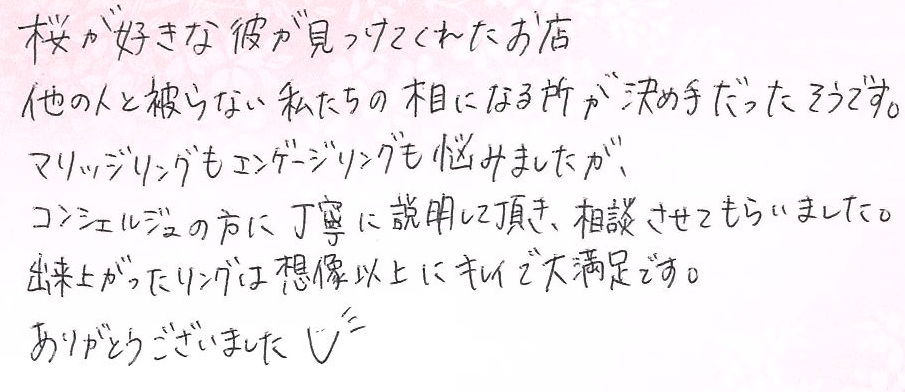 桜が好きな彼が見つけてくれたお店
他の人と被らない私たちの木目になる所が決め手だったそうです。
マリッジリングもエンゲージリングも悩みましたが、
コンシェルジュの方に丁寧に説明して頂き、相談させてもらいました。
出来上がったリングは想像以上にキレイで大満足です。
ありがとうございました